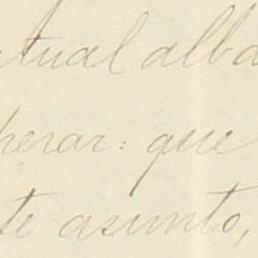 tual alba
perar: que
te asunto,